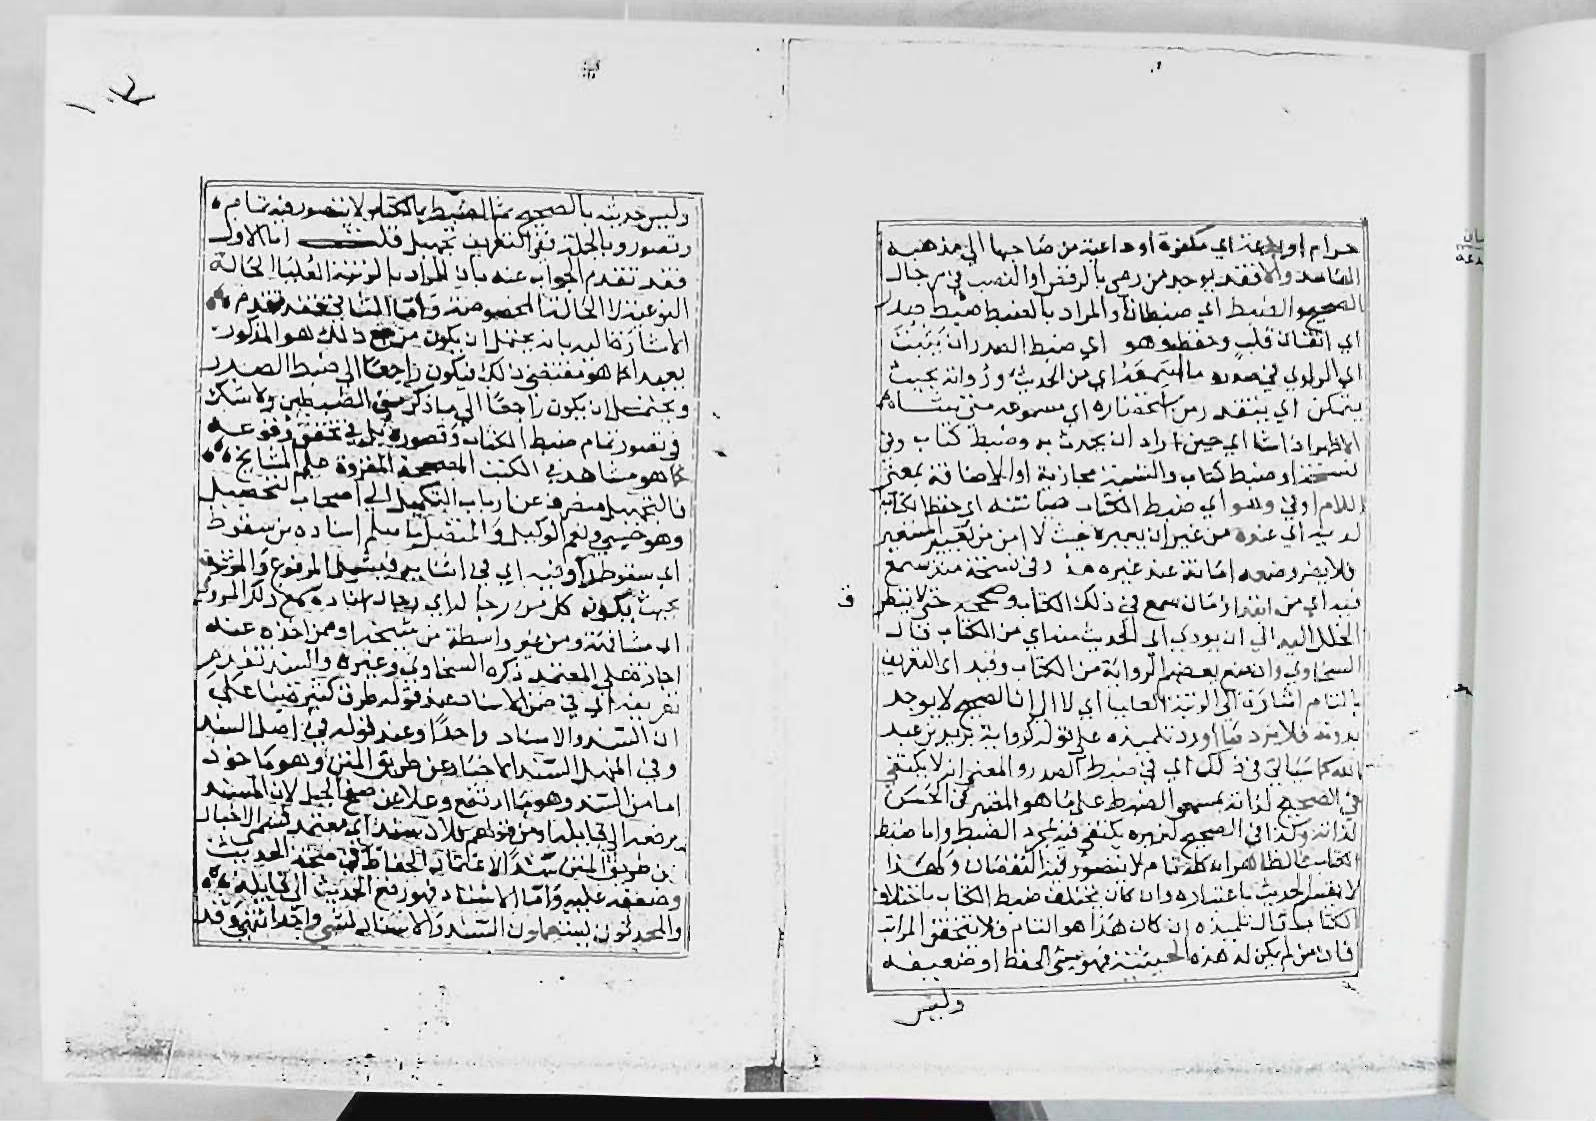 حرام او بدعة اي مكفرة او داعية من صاحبها الى مذهبه
الفاسد والا فقد يوجد من رمي بالرفض او النصب في رجال
الصحيح والضبط اي ضبطان والمراد بالضبط ضبط صدر
اي اتقان قلب وحفظ وهو اي ضبط الصدر ان يثبت
اي الراوي في صدره ما سمعه اي من الحديث ورواته بحيث
يتمكن اي يقتدر من استحضاره اي مسموعه متى شاء
الاظهر اذا شاء اي حين اراد ان يحدث به وضبط كتاب وفي
نسخة او ضبط كتاب والنسبة مجازية او الاضافة بمعنى
اللام او في وهو اي ضبط الكتاب صيانته اي حفظ الكتاب
لديه اي عنده من غير ان يعيره حيث لا امن من تغيير المستعير
فلا يضر وضعه امانة عند غيره منذ وفي نسخة منذ سمع
فيه اي من ابتداء زمان سمع في ذلك الكتاب وصححه حتى لا يتطرق
الخلل اليه الى ان يؤدي اي الحديث منه اي من الكتاب قال
السخاوي وان منع بعضهم الرواية من الكتاب وقيد اي التعريف
بالتام اشارة الى الرتبة العليا اي لا الى ان الصحيح لا يوجد
بدونه فلا يرد ما اورد تلميذه على قوله كرواية بريد بن عبد
الله كما سياتي في ذلك اي في ضبط الصدر والمعنى انه لا يكتفي
في الصحيح لذاته بمسمى الضبط على ما هو المعتبر في الحسن
لذاته وكذا في الصحيح لغيره يكتفي فيه بمجرد الضبط واما ضبط
الكتاب فالظاهر انه كله تام لا يتصور فيه النقصان ولهذا
لا يقسم الحديث باعتباره وان كان يختلف ضبط الكتاب باختلاف
الكتاب قال تلميذه ان كان هذا هو التام فلا تتحقق المراتب
فان من لم يكن له هذه الحيثية فهو سيئ الحفظ او ضعيفه
وليس
ف
وليس حديثه بالصحيح ثم الضبط بالكتاب لا يتصور فيه تمام
وقصور وبالجملة ففي التعريف تجهيل قلت اما الاول
فقد تقدم الجواب عنه بان المراد بالرتبة العليا الحالة
النوعية لا الحالة المخصوصة واما الثاني فقد تقدم
الاشارة اليه بانه يحتمل ان يكون مرجع ذلك هو المذكور
بعيدا كما هو مقتضى ذلك فيكون راجعا الى ضبط الصدر
ويحتمل ان يكون راجعا الى ما ذكر من الضبطين ولا شك
في تصور تمام ضبط الكتاب وقصوره بل في تحقق وقوعه
كما هو مشاهد في الكتب المصححة المقروة على المشايخ
فالتجهيل منصرف عن ارباب التكميل الى اصحاب التحصيل
وهو حسبي ونعم الوكيل والمتصل ما سلم اسناده من سقوط
اي سقوط راو فيه اي في اثنائه فيشمل المرفوع والموقوف
بحيث يكون كل من رجاله اي رجال اسناده سمع ذلك المروي
اي مشافهة ومن غير واسطة من شيخه او ممن اخذه عنه
اجازة على المعتمد ذكره السخاوي وغيره والسند تقدم
تعريفه اي في ضمن الاسناد عند قوله طرق كثيرة بناء على
ان السند والاسناد واحدا وعند قوله في اصل السند
وفي المنهل السند الاخبار عن طريق المتن وهو ماخوذ
اما من السند وهو ما ارتفع وعلا عن صفح الجبل لان المسند
يرفعه الى قايله او من قولهم فلان سند اي معتمد فسمي الاخبار
عن طريق المتن سندا لاعتماد الحفاظ في صحة الحديث
وضعفه عليه واما الاسناد فهو رفع الحديث الى قايله
والمحدثون يستعملون السند والاسناد لشي واحد انتهى وقد